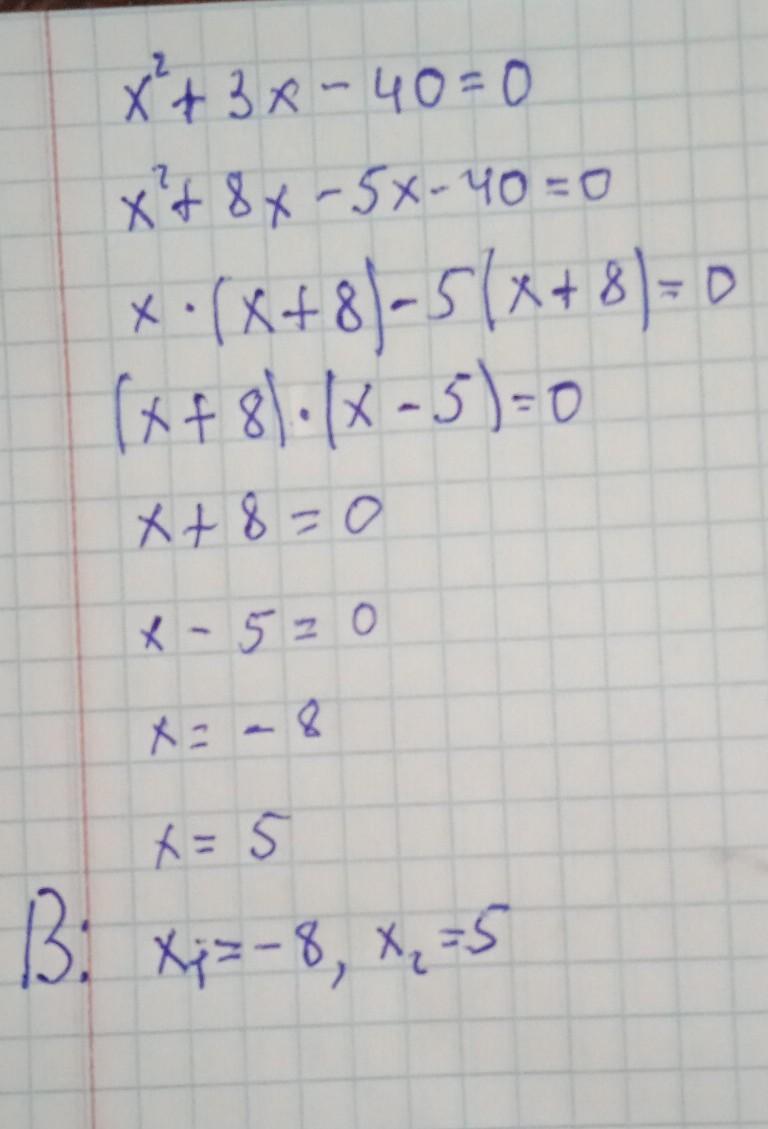 x² + 3x - 40 = 0
x² + 8x - 5x - 40 = 0
x · (x + 8) - 5(x + 8) = 0
(x + 8) · (x - 5) = 0
x + 8 = 0
x - 5 = 0
x = - 8
x = 5
В: x₁ = -8, x₂ = 5